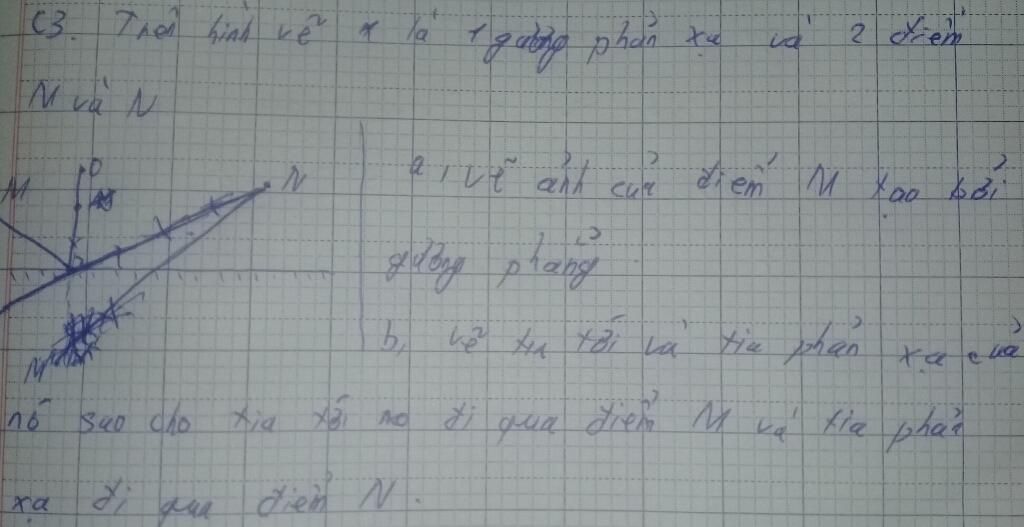 C3. Trên hình vẽ 1 là 1 gương phản xạ và 2 điểm
M và N
M
N
a, vẽ ảnh của điểm M tạo bởi
gương phẳng
M'
b, vẽ tia tới và tia phản xạ của
nó sao cho tia tới nó đi qua điểm M và tia phản
xạ đi qua điểm N.